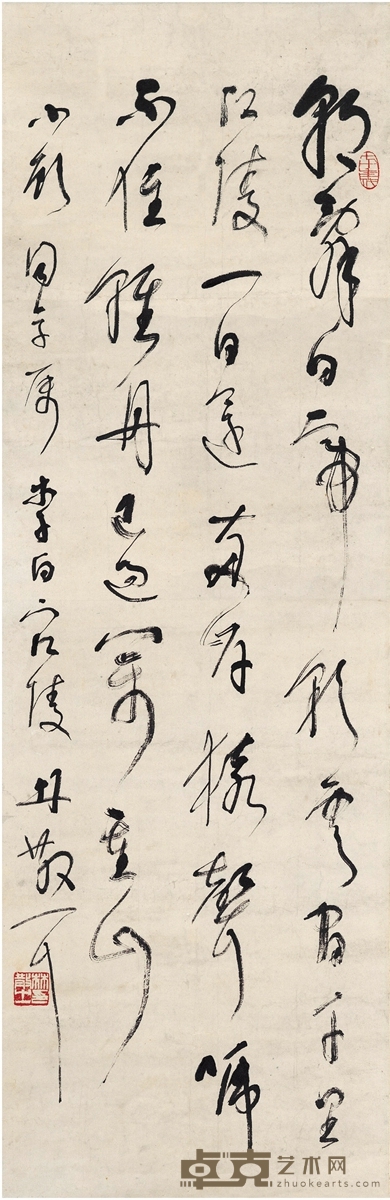 朝辭白帝彩雲間千里
江陵一日還兩岸猿聲啼
不住輕舟已過萬重山
小 同 屬 李白下江陵 林散耳
卓克艺术网
zhuokearts.com